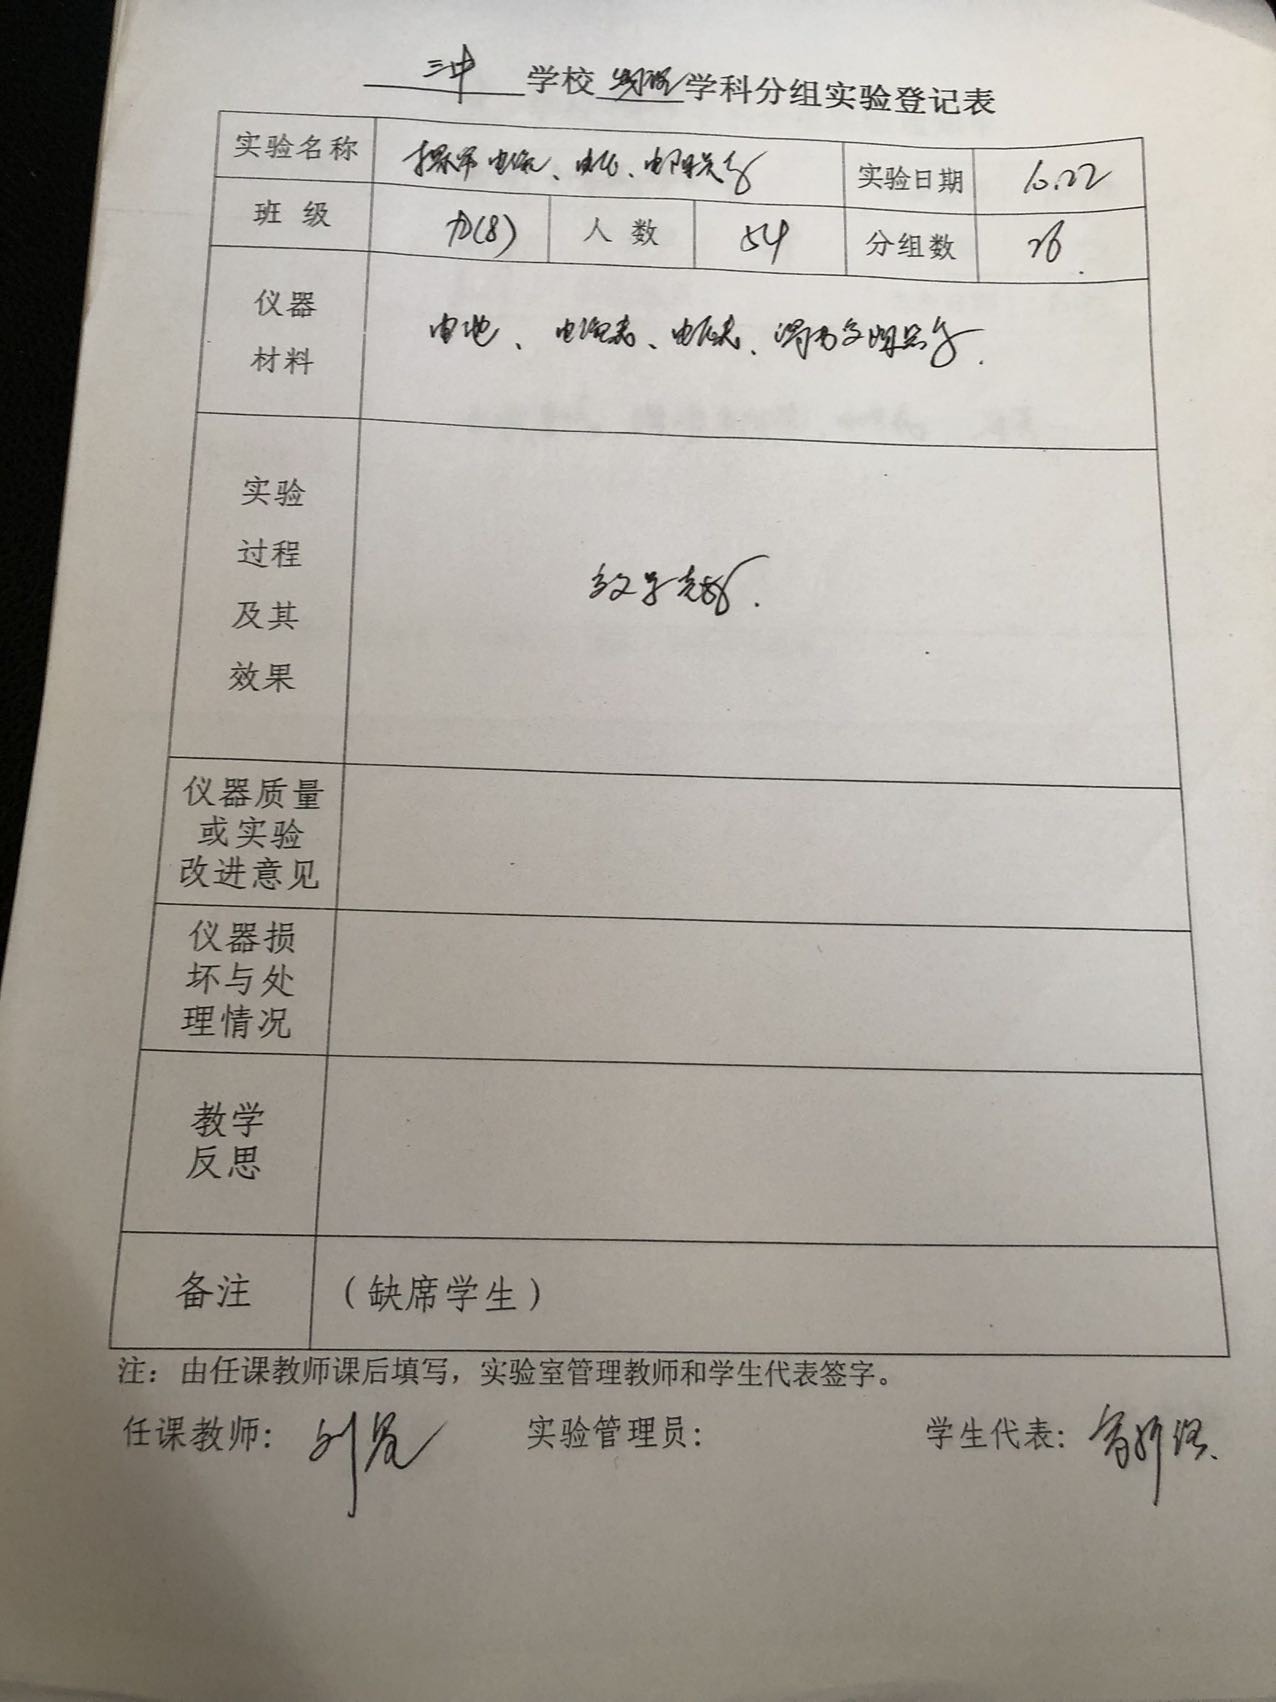 三中 学校 物理 学科分组实验登记表
实验名称 探究电流、电压、电阻关系 实验日期 10.22
班 级 九(8) 人 数 54 分组数 26
仪器 材料 电池、电流表、电压表、滑动变阻器等.
实验
过程
及其
效果
效果良好.
仪器质量
或实验
改进意见
仪器损
坏与处
理情况
教学
反思
备注 (缺席学生)
注：由任课教师课后填写，实验室管理教师和学生代表签字。
任课教师: 实验管理员: 学生代表: